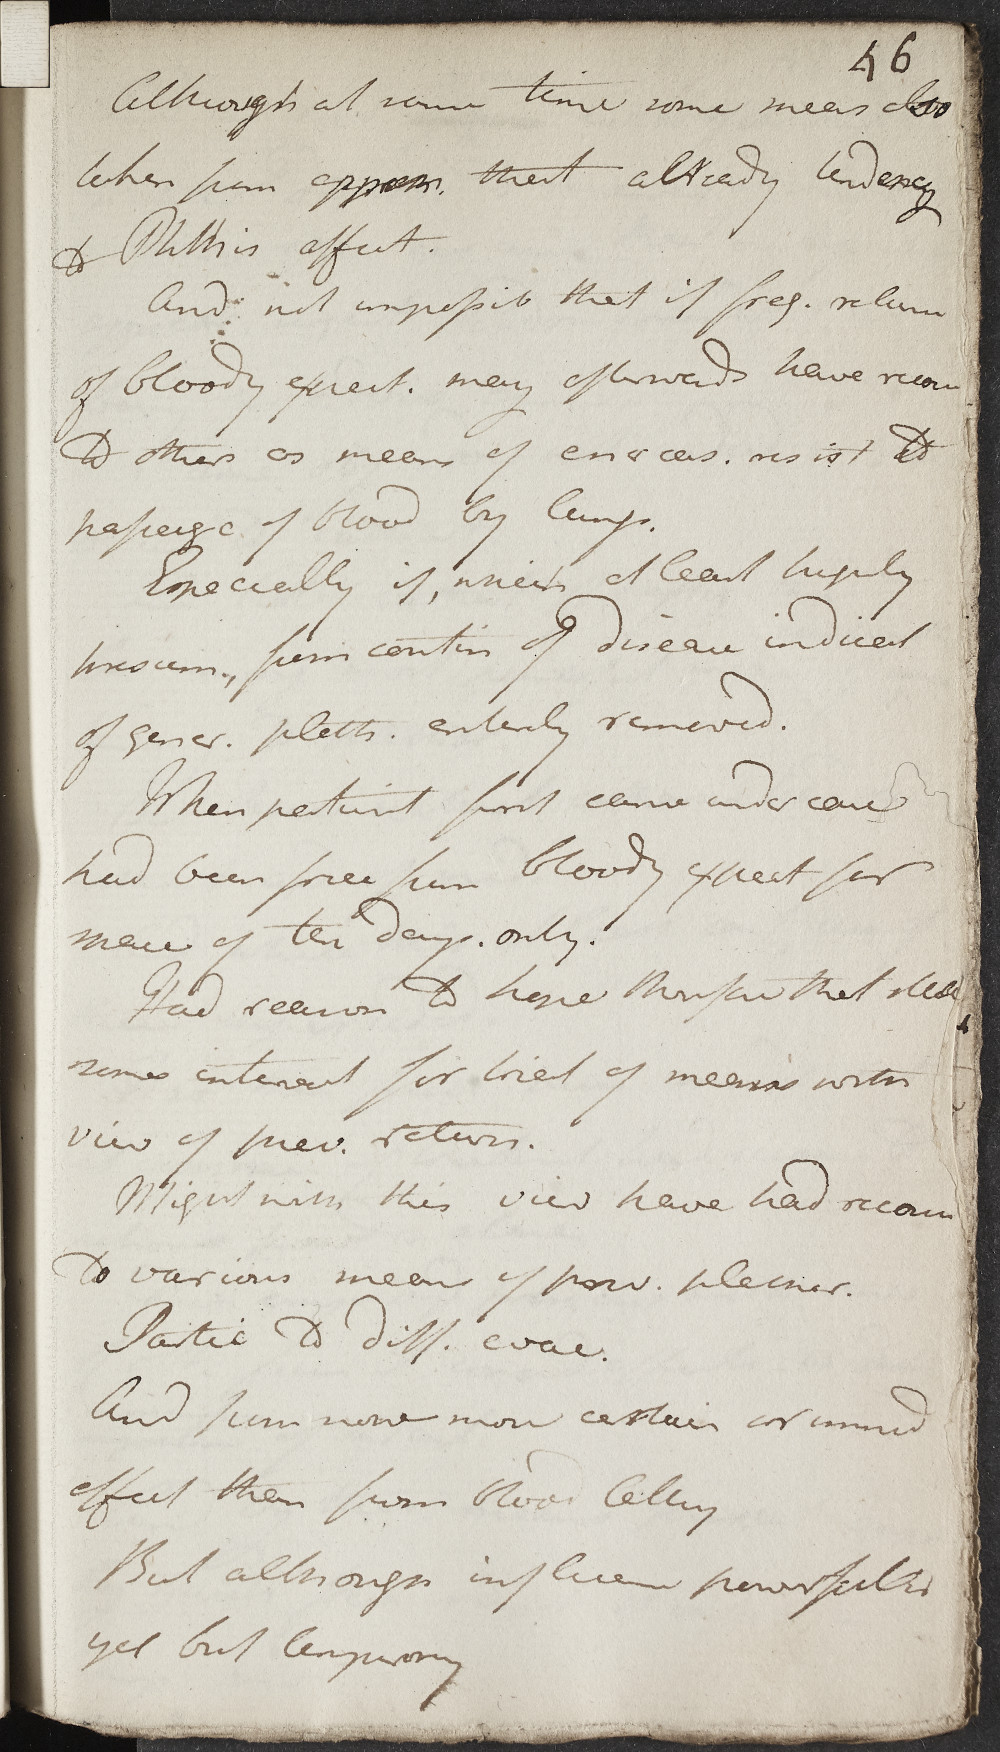 46
Although at same time some means also
when from appear. that already tendency
to Phthisis affect.
And not impossib that if freq. return
of bloody expect. may afterwards have recour
to others as means of increas. resist to
passage of blood by lungs.
Especially if, which at least highly
presum., from contin of disease indicat
of gener. pleth. entirely removed.
When patient first came under care
had been free from bloody expect for
space of ten days. only.
Had reason to hope therefore that should
some interval for trial of means with
view of prev. return.
Might with this view have had recour
to various means of prev. plethor.
Partic to diff. evac.
And from none more certain or immed
effect than from blood letting
But although influence powerful
yet but temporary